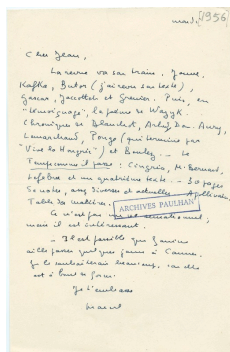 mardi (1956)
Cher Jean,
La revue va son train, Jeanne,
Kafka, Butor (j'ai revu son texte),
Gascar, Jaccottet et Grenier. Puis, en
"témoignage", le poème de Wazyk.
Chroniques de Blanchot, Arland, Dom. Aury,
Lemarchand, Ponge (qui termine par
"Vive la Hongrie") et Boulez. — Le
Temps comme il passe : Cingria, M. Bernard,
Lefebve et un quatrième texte. — 30 pages
de notes, assez diverses et actuelles.
Table des matières.
Ce n'est pas un n° sensationnel,
mais il est intéressant.
— Il est possible que Janine
aille passer quelques jours à Cannes.
Je le souhaiterais beaucoup, car elle
est à bout de forces.
Je t'embrasse
Marcel
ARCHIVES PAULHAN